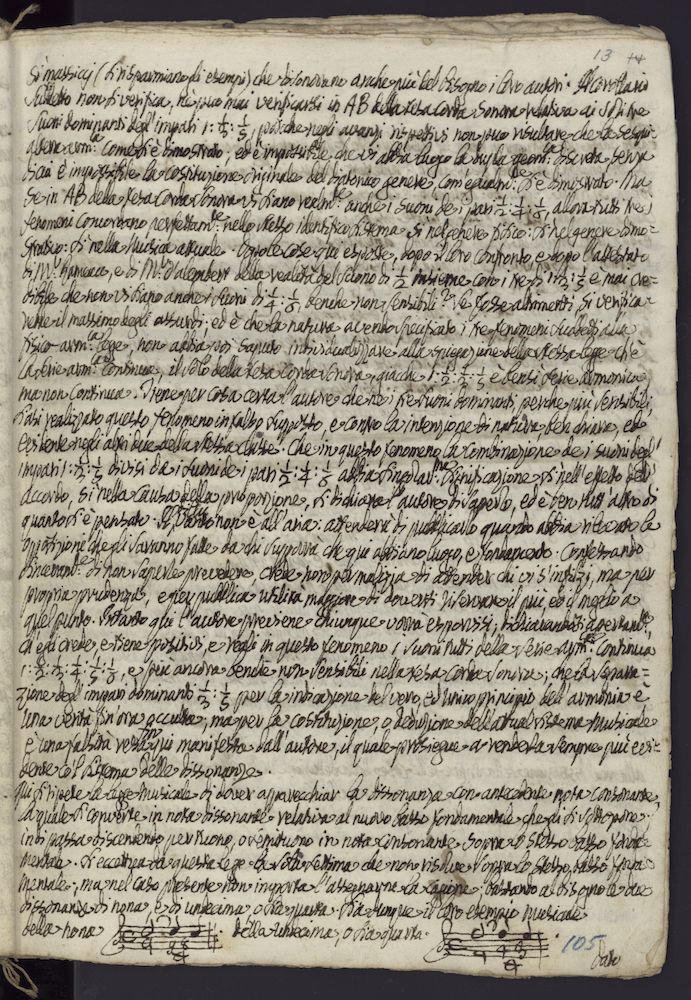 13
si massicj (si risparmiano gli esempj) che disonorano anche più del bisogno i loro autori. Il Corollario
sudetto non si verifica, ne può mai verificarsi in AB della tesa corda sonora relativa ai soli tre
suoni dominanti degl'impari 1: 1/3: 1/5, perche negli avanzi rispettivi non può risultare che la sesqui-
altera arm.ca Come si è dimostrato; ed è impossibile, che vi abbia luogo la dupla geom.ca discreta, senza
di cui è impossibile la costituzione originale del diatonico genere, com'egualm.te si è dimostrato. Ma
se in AB della tesa corda sonora vi siano realm.te anche i suoni de i pari 1/2: 1/4: 1/6, allora tutti tre i
fenomeni concordano perfettam.te nello stesso identifico sistema, si nel genere fisico: si nel genere dimo-
strativo: si nella Musica attuale. Dopo le cose qui esposte, dopo il loro confronto, e dopo l'attestato
di M.r Rameau, e di M.r d'Alembert della realtà del suono di 1/2 insieme con i tre di 1: 1/3: 1/5 è mai cre-
dibile che non vi siano anche i suoni di 1/4: 1/6, benche non sensibili? Se fosse altramenti, si verifica-
rebbe il massimo degli assurdi; ed è che la natura avendo pacificato i tre fenomeni sudetti alla
fisico-arm.ca legge, non abbia poi saputo individualizzare alla spiegazione della stessa legge, ch'è
la serie arm.ca continua, il solo della tesa corda sonora, giacche 1: 1/3: 1/5 è bensì serie armonica,
ma non continua. Tiene per cosa certa l'autore che de i tre suoni dominanti, perche più sensibili,
siasi realizato questo fenomeno in falso supposto, e contro la intenzione di natura ben chiara, ed
evidente negli altri due della stessa classe. Che in questo fenomeno la combinazione de i suoni degl'
impari 1: 1/3: 1/5 divisi da i suoni de i pari 1/2: 1/4: 1/6 abbia singolar significazione si nell'effetto dell'
accordo, si nella causa della proporzione, si dichiara l'autore di saperlo, ed è ben tutt'altro di
quanto si è pensato. Il non è all'aria: attendere di publicarlo quando abbia ricevuto le
opposizioni che gli saranno fatte da chi supporrà che qui abbiano luogo, e fondamento. Confessando
sinceram.te di non saperle prevedere, crede non per malizia di attender chi vi s'infilzi, ma per
propria prudenza, e per publica utilità maggiore di doversi riservare il più, ed il meglio a
quel punto. Intanto qui l'autore previene chiunque vorrà esporvisi; dichiarandosi apertam.te
ch'egli crede, e tiene positivi, e reali in questo fenomeno i suoni tutti della serie arm.ca continua
1: 1/2: 1/3: 1/4: 1/5: 1/6, e più ancora benche non sensibili nella tesa corda sonora; che la separa=
zione degl'impari dominanti 1: 1/3: 1/5 per la indicazione del vero, ed unico principio dell'armonia è
una verità sin'ora occulta, ma per la costituzione, o deduzione dell'attual sistema Musicale
è una falsità resa qui manifesta dall'autore, il quale prosiegue a renderla sempre più evi-
dente col sistema delle dissonanze.
Qui si ripete la legge musicale di dover apparecchiar la dissonanza con antecedente nota consonante,
la quale si converte in nota dissonante relativa al nuovo basso fondamentale che gli si sottopone:
indi passa discendendo per tuono, o semituono in nota consonante sopra lo stesso basso fonda-
mentale. Si eccettua da questa legge la sola settima che non risolve sopra lo stesso basso fonda-
mentale; ma nel caso presente non importa l'assegnarne la ragione bastando al bisogno le due
dissonanze di nona, e di undecima, o sia quarta. Sia dunque il loro esempio musicale
della nona
della undecima, o sia quarta.
105